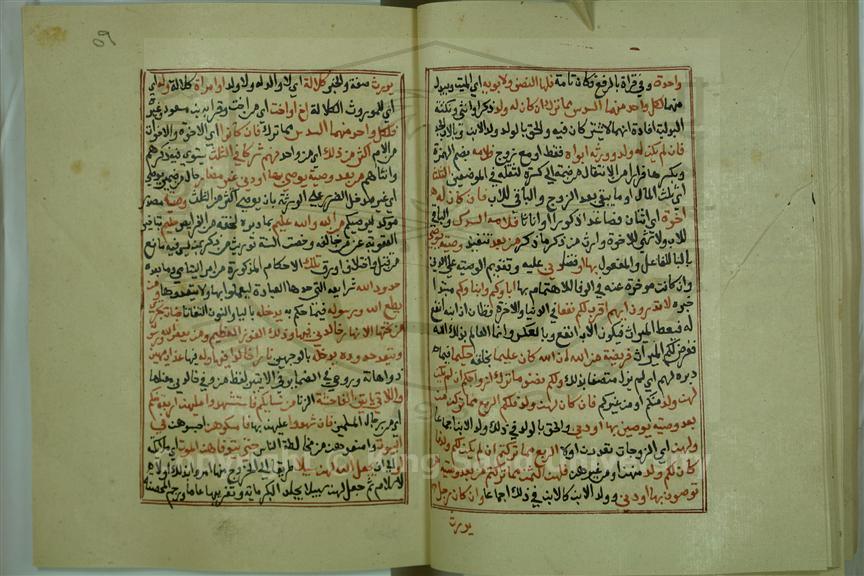 واحدة وفي قراة بالرفع فكان تامة فلها النصف ولابويه اي الميت ويبدل
منهما لكل واحد منهما السدس مما ترك ان كان له ولد ذكرا وانثي ونكتة
البدلية افادة انهما لا يشتركان فيه والحق بالولد ولد الابن وبالاب الجد
فان لم يكن له ولد وورثه ابواه فقط او مع زوج فلامه بضم الهمزة
وبكسرها فرارا من الانتقال من ضمة الي كسرة لثقله في الموضعين الثلث
اي ثلث المال او ما يبقي بعد الزوج والباقي للاب فان كان له
اخوة اي اثنان فصاعدا ذكورا واناثا فلامه السدس والباقي
للاب ولا شي للاخوة وارث من ذكر ما ذكر من بعد تنفيذ وصية يوصي
بالبنا للفاعل والمفعول بها او قضا دين عليه وتقديم الوصية علي الدين
وان كانت موخرة عنه في الوفا للاهتمام بها اباوكم وابناوكم مبتدا
خبره لا تدرون ايهم اقرب لكم نفعا في الدنيا والاخرة فظان ان ابنه انفع
له فيعطيه الميراث فيكون الاب انفع وبالعكس وانما العالم بذلك الله
ففرض لكم الميراث فريضة من الله ان الله كان عليما بخلقه حكيما فيما
دبره لهم اي لم يزل متصفا بذلك ولكم نصف ما ترك ازواجكم ان لم يكن
لهن ولد منكم او من غيركم فان كان لهن ولد فلكم الربع مما تركن من
بعد وصية يوصين بها او دين والحق بالولد في ذلك ولد الابن اجماعا
ولهن اي الزوجات تعددن اولا الربع مما تركتم ان لم يكن لكم ولد فان
كان لكم ولد منهن او من غيرهن فلهن الثمن مما تركتم من بعد وصية
توصون بها او دين وولد الابن كالابن في ذلك اجماعا وان كان رجل
يورث
يورث صفة والخبر كلالة اي لا والد له ولا ولد او امراة كلالة وله اي
اي للموروث الكلالة اخ او اخت اي من ام وقرا به ابن مسعود وغيره
فلكل واحد منهما السدس مما ترك فان كانوا اي الاخوة والاخوات
من الام اكثر من ذلك اي من واحد فهم شركا في الثلث يستوي فيه ذكرهم
وانثاهم من بعد وصية يوصي بها او دين غير مضار حال من ضمير يوصي
اي غير مدخل الضرر علي الورثة بان يوصي باكثر من الثلث وصية مصدر
موكد ليوصيكم من الله والله عليم بما دبره لخلقه من الفرايض حليم بتاخير
العقوبة عن من خالفه وخصت السنة توريث من ذكر بمن ليس فيه مانع
من قتل او اختلاف دين او رق تلك الاحكام المذكورة من امر اليتامي وما بعده
حدود الله شرايعه التي حدها لعباده ليعملوا بها ولا يتعدوها ومن
يطع الله ورسوله فيما حكم به يدخله باليا والنون التفاتا جنات تجري
من تحتها الانهار خالدين فيها وذلك الفوز العظيم ومن يعص الله ورسوله
ويتعد حدوده يدخله بالوجهين نارا خالدا فيها وله فيها عذاب مهين
ذو اهانة وروعي في الضماير في الايتين لفظ من وفي خالدين معناها
واللاتي ياتين الفاحشة الزنا من نسايكم فاستشهدوا عليهن اربعة منكم
اي من رجال المسلمين فان شهدوا عليهن بها فامسكوهن احبسوهن في
البيوت وامنعوهن من مخالطة الناس حتي يتوفاهن الموت اي ملايكته
او الي ان يجعل الله لهن سبيلا طريقا الي الخروج منها امروا بذلك اول
الاسلام ثم جعل لهن سبيلا بجلد البكر ماية وتغريبها عاما ورجم المحصنة